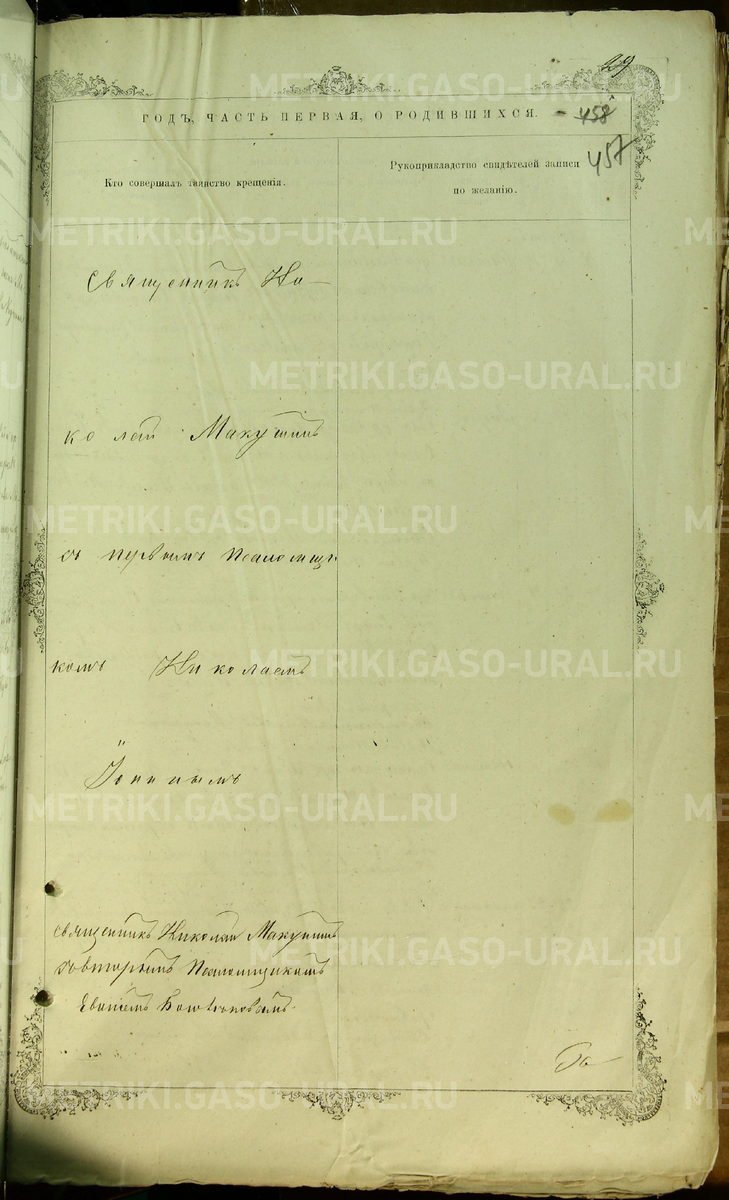 29
ГОДЪ, ЧАСТЬ ПЕРВАЯ, О РОДИВШИХСЯ.
458
457
Кто совершалъ таинство крещенія.
Рукоприкладство свидѣтелей записи
по желанію.
Священникъ Ни-
колай Макушинъ
съ первымъ Псаломщи
комъ Николаемъ
священникъ Николай Макушинъ
совторымъ Псаломщикомъ
METRIKI.GASO-URAL.RU